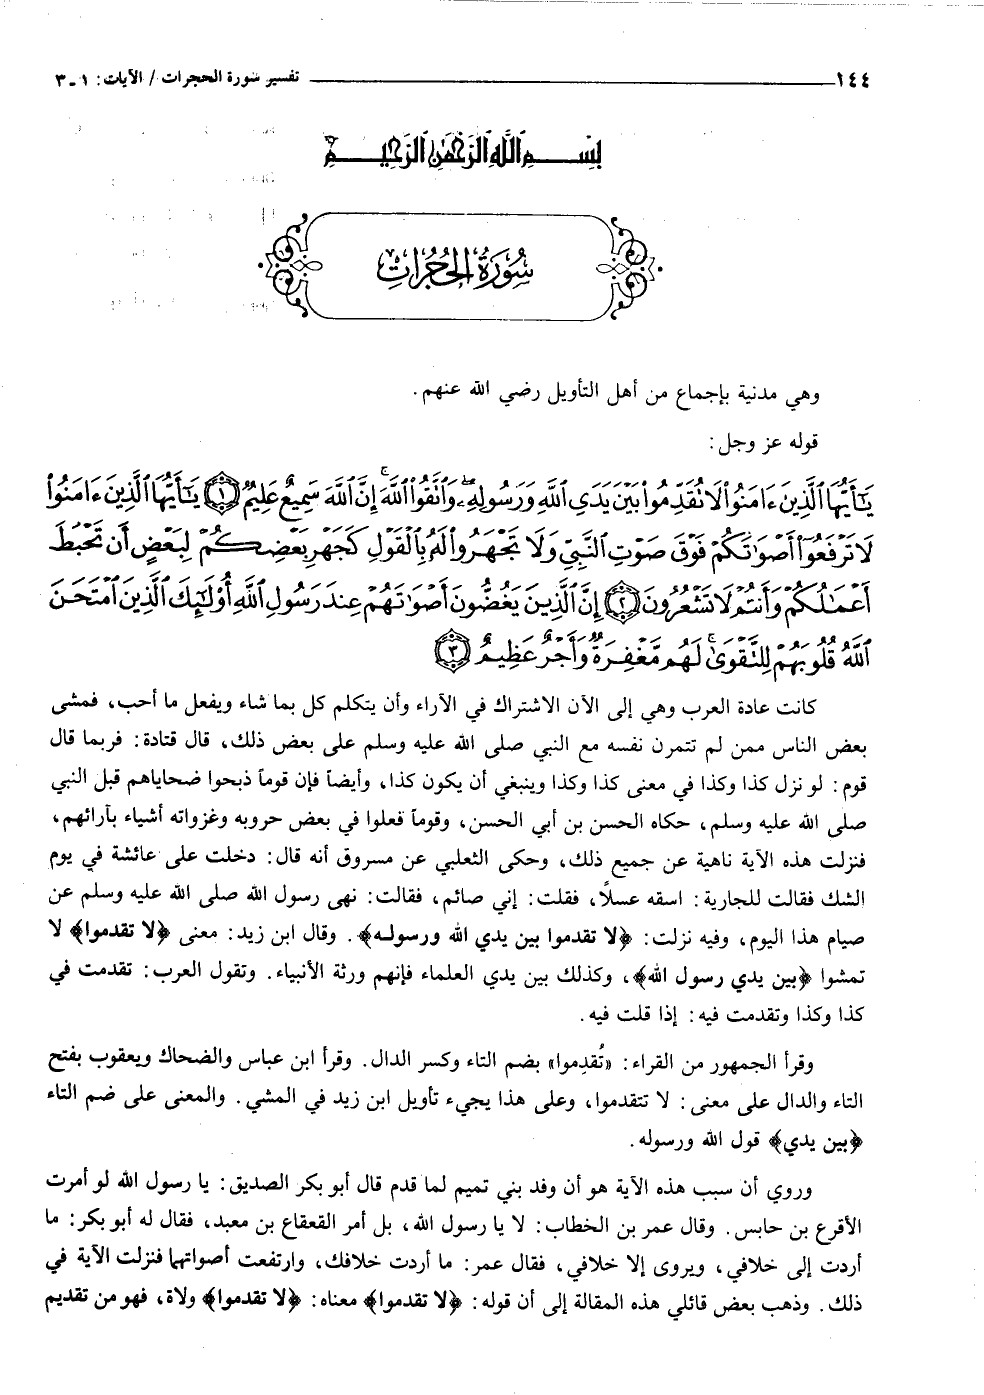 ١٤٤ تفسير سورة الحجرات / الآيات: ١ ـ ٣
بِسْمِ اللَّهِ الرَّحْمَٰنِ الرَّحِيمِ
سُورَةُ الحُجُرَاتِ
وهي مدنية بإجماع من أهل التأويل رضي الله عنهم.
قوله عز وجل:
يَٰٓأَيُّهَا ٱلَّذِينَ ءَامَنُوا۟ لَا تُقَدِّمُوا۟ بَيْنَ يَدَىِ ٱللَّهِ وَرَسُولِهِۦ ۖ وَٱتَّقُوا۟ ٱللَّهَ ۚ إِنَّ ٱللَّهَ سَمِيعٌ عَلِيمٌ ﴿١﴾ يَٰٓأَيُّهَا ٱلَّذِينَ ءَامَنُوا۟
لَا تَرْفَعُوٓا۟ أَصْوَٰتَكُمْ فَوْقَ صَوْتِ ٱلنَّبِىِّ وَلَا تَجْهَرُوا۟ لَهُۥ بِٱلْقَوْلِ كَجَهْرِ بَعْضِكُمْ لِبَعْضٍ أَن تَحْبَطَ
أَعْمَٰلُكُمْ وَأَنتُمْ لَا تَشْعُرُونَ ﴿٢﴾ إِنَّ ٱلَّذِينَ يَغُضُّونَ أَصْوَٰتَهُمْ عِندَ رَسُولِ ٱللَّهِ أُو۟لَٰٓئِكَ ٱلَّذِينَ ٱمْتَحَنَ
ٱللَّهُ قُلُوبَهُمْ لِلتَّقْوَىٰ ۚ لَهُم مَّغْفِرَةٌ وَأَجْرٌ عَظِيمٌ ﴿٣﴾
كانت عادة العرب وهي إلى الآن الاشتراك في الآراء وأن يتكلم كل بما شاء ويفعل ما أحب، فمشى
بعض الناس ممن لم تتمرن نفسه مع النبي صلى الله عليه وسلم على بعض ذلك، قال قتادة: فربما قال
قوم: لو نزل كذا وكذا في معنى كذا وكذا وينبغي أن يكون كذا، وأيضاً فإن قوماً ذبحوا ضحاياهم قبل النبي
صلى الله عليه وسلم، حكاه الحسن بن أبي الحسن، وقوماً فعلوا في بعض حروبه وغزواته أشياء بآرائهم،
فنزلت هذه الآية ناهية عن جميع ذلك، وحكى الثعلبي عن مسروق أنه قال: دخلت على عائشة في يوم
الشك فقالت للجارية: اسقه عسلاً، فقلت: إني صائم، فقالت: نهى رسول الله صلى الله عليه وسلم عن
صيام هذا اليوم، وفيه نزلت: ﴿لا تقدموا بين يدي الله ورسولـه﴾. وقال ابن زيد: معنى ﴿لا تقدموا﴾ لا
تمشوا ﴿بين يدي رسول الله﴾، وكذلك بين يدي العلماء فإنهم ورثة الأنبياء. وتقول العرب: تقدمت في
كذا وكذا وتقدمت فيه: إذا قلت فيه.
وقرأ الجمهور من القراء: «تُقدِموا» بضم التاء وكسر الدال. وقرأ ابن عباس والضحاك ويعقوب بفتح
التاء والدال على معنى: لا تتقدموا، وعلى هذا يجيء تأويل ابن زيد في المشي. والمعنى على ضم التاء
﴿بين يدي﴾ قول الله ورسوله.
وروي أن سبب هذه الآية هو أن وفد بني تميم لما قدم قال أبو بكر الصديق: يا رسول الله لو أمرت
الأقرع بن حابس. وقال عمر بن الخطاب: لا يا رسول الله، بل أمر القعقاع بن معبد، فقال له أبو بكر: ما
أردت إلى خلافي، ويروى إلا خلافي، فقال عمر: ما أردت خلافك، وارتفعت أصواتهما فنزلت الآية في
ذلك. وذهب بعض قائلي هذه المقالة إلى أن قوله: ﴿لا تقدموا﴾ معناه: ﴿لا تقدموا﴾ ولاة، فهو من تقديم